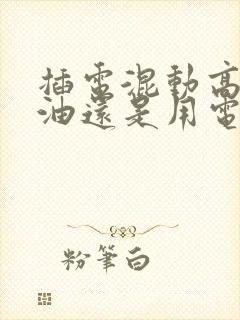 插電混動高
油還是用電
粉筆白